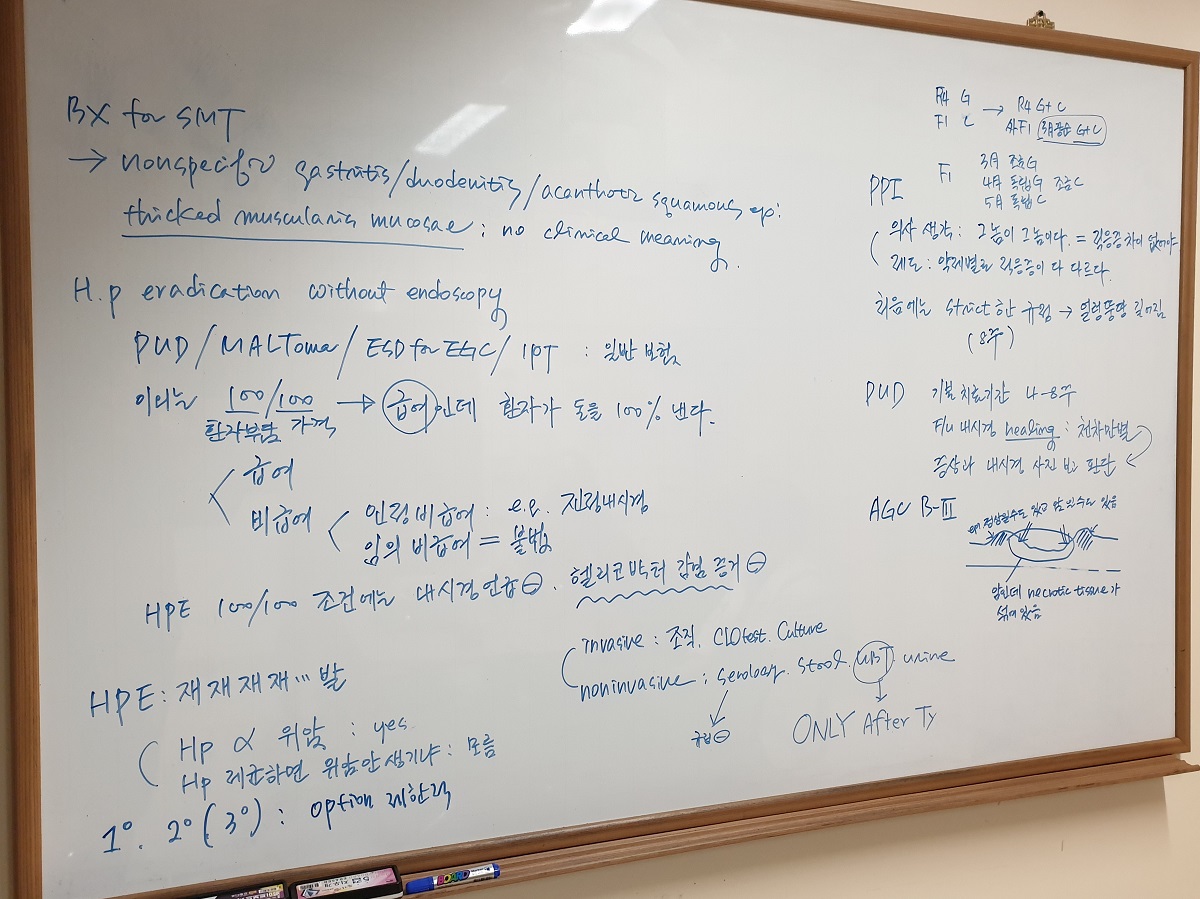 BX for SMT
→ nonspecific gastritis/duodenitis/acanthotic squamous ep:
thicked muscularis mucosae ; no clinical meaning.
H.p eradication without endoscopy
PUD/MALToma/ESD for EGC/ITP : 일반 보험
이외는 100/100 → 급여인데 환자가 돈을 100% 낸다.
환자부담 가격
급여
비급여
인정비급여 : e.g. 진정내시경
임의 비급여 = 불법
HPE 100/100 조건에는 내시경 언급 ⊖. 헬리코박터 감염 증거 ⊖
invasive : 조직. CLOtest. Culture
noninvasive ; serology. stool. UBT urine
규정 ⊖
ONLY After Ty
HPE : 재재재재…발
Hp ∝ 위암 : yes
Hp 제균하면 위암 안생기냐 : 모름
1°. 2° (3°) : option 제한적
R4 G → R4 G+C
F1 C F1 3月 G+C
F1 3月 조효 G
4月 독립 G 조효 C
5月 독립 C
PPI
의사 생각 : 그놈이 그놈이다. = 적응증 차이 없어야
제도 : 약제별로 적응증이 다 다르다.
처음에는 strict한 규정 → 얼렁뚱땅 길어짐
(8주)
PUD 기본 치료기간 4-8주
F/u 내시경 healing : 천차만별
증상과 내시경 사진 보고 판단
AGC B-III
epi 정상일수도 있고 암 있을수도 있음
암인데 necrotic tissue가
섞여 있음